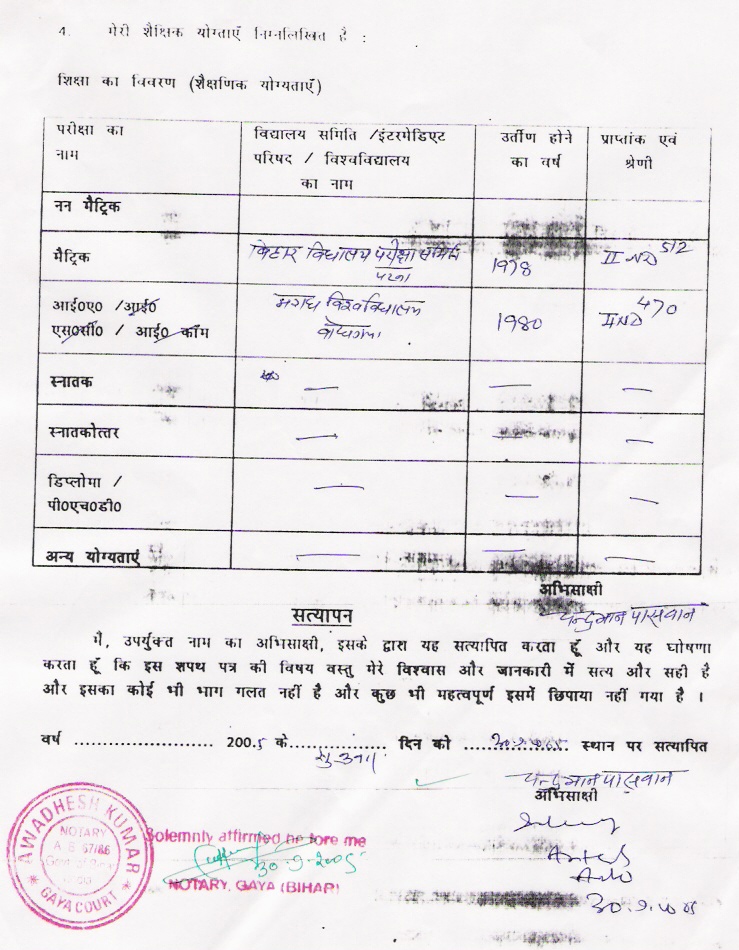 4. मेरी शैक्षिक योग्ताएँ निम्नलिखित है :
शिक्षा का विवरण (शैक्षणिक योग्यताएँ)
परीक्षा का नाम
विद्यालय समिति /इंटरमेडिएट परिषद / विश्वविद्यालय का नाम
उर्तीण होने का वर्ष
प्राप्तांक एवं श्रेणी
नन मैट्रिक
मैट्रिक
बिहार विद्यालय परीक्षा समिति पटना
1978
II ND 512
आई0ए0 /आई0 एस0सी0 / आई0 कॉम
मगध विश्वविद्यालय बोधगया
1980
IIND 470
स्नातक — — —
स्नातकोत्तर — — —
डिप्लोमा / पी0एच0डी0 — — —
अन्य योग्यताएँ — — —
अभिसाक्षी
चन्द्रभान पासवान
सत्यापन
मै, उपर्युक्त नाम का अभिसाक्षी, इसके द्वारा यह सत्यापित करता हूँ और यह घोषणा
करता हूँ कि इस शपथ पत्र की विषय वस्तु मेरे विश्वास और जानकारी में सत्य और सही है
और इसका कोई भी भाग गलत नहीं है और कुछ भी महत्वपूर्ण इसमें छिपाया नहीं गया है ।
वर्ष ........................ 2005 के................. दिन को .................. स्थान पर सत्यापित
चन्द्रभान पासवान
अभिसाक्षी
AWADHESH KUMAR
NOTARY
GAYA COURT
Solemnly affirmed before me
30-9-2005
NOTARY, GAYA (BIHAR)